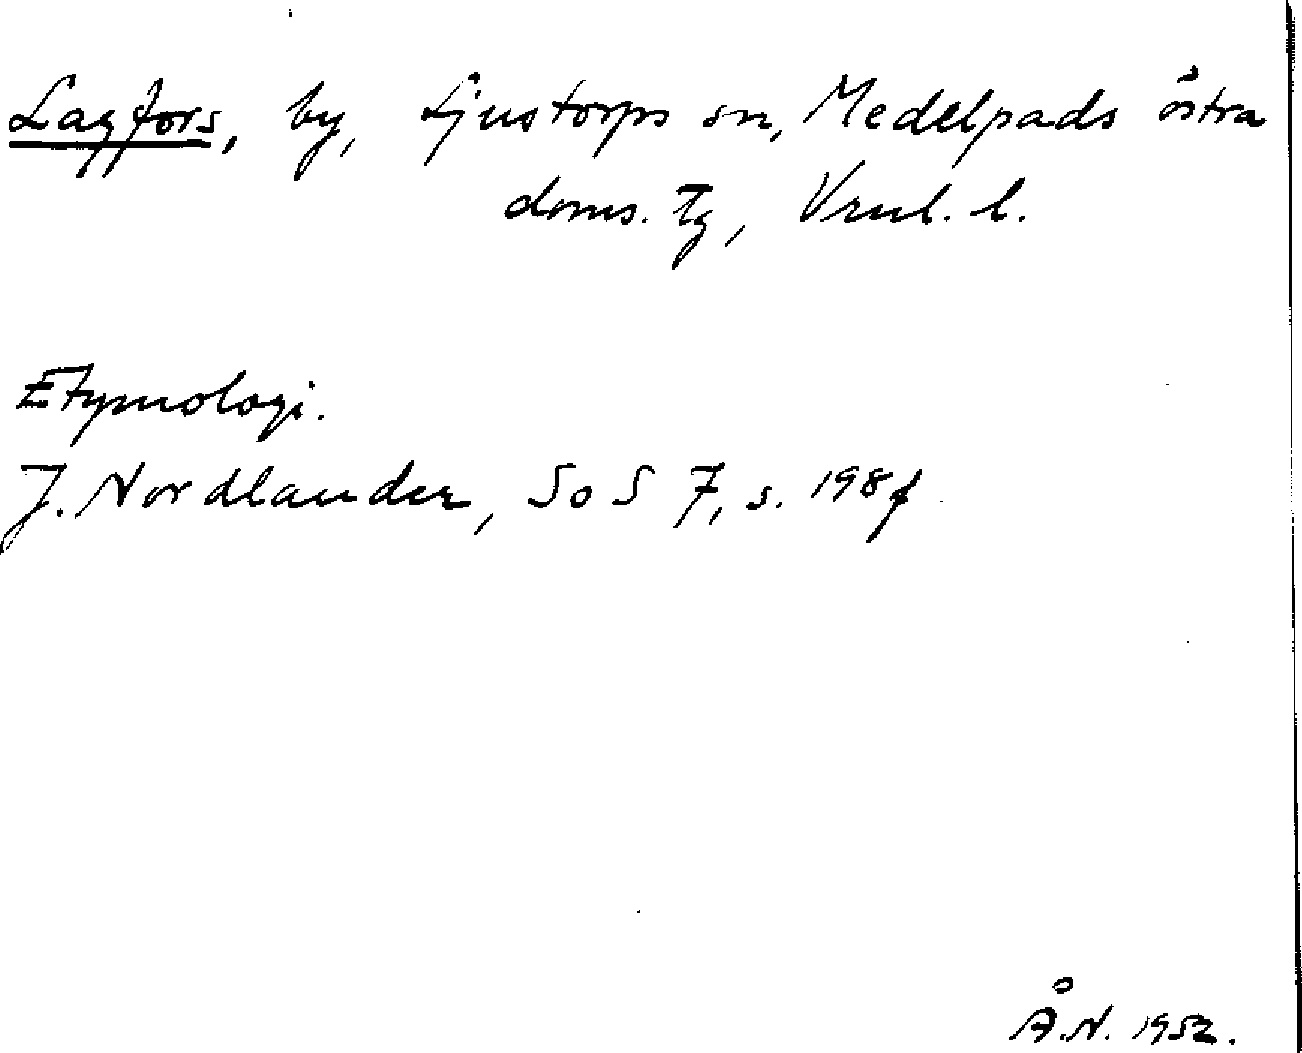 Lagfors, by, Ljustorps sn, Medelpads östra
doms. tg, Vrnl. l.
Etymologi.
J. Nordlander, SoS 7, s. 198f
Å.N. 1952.